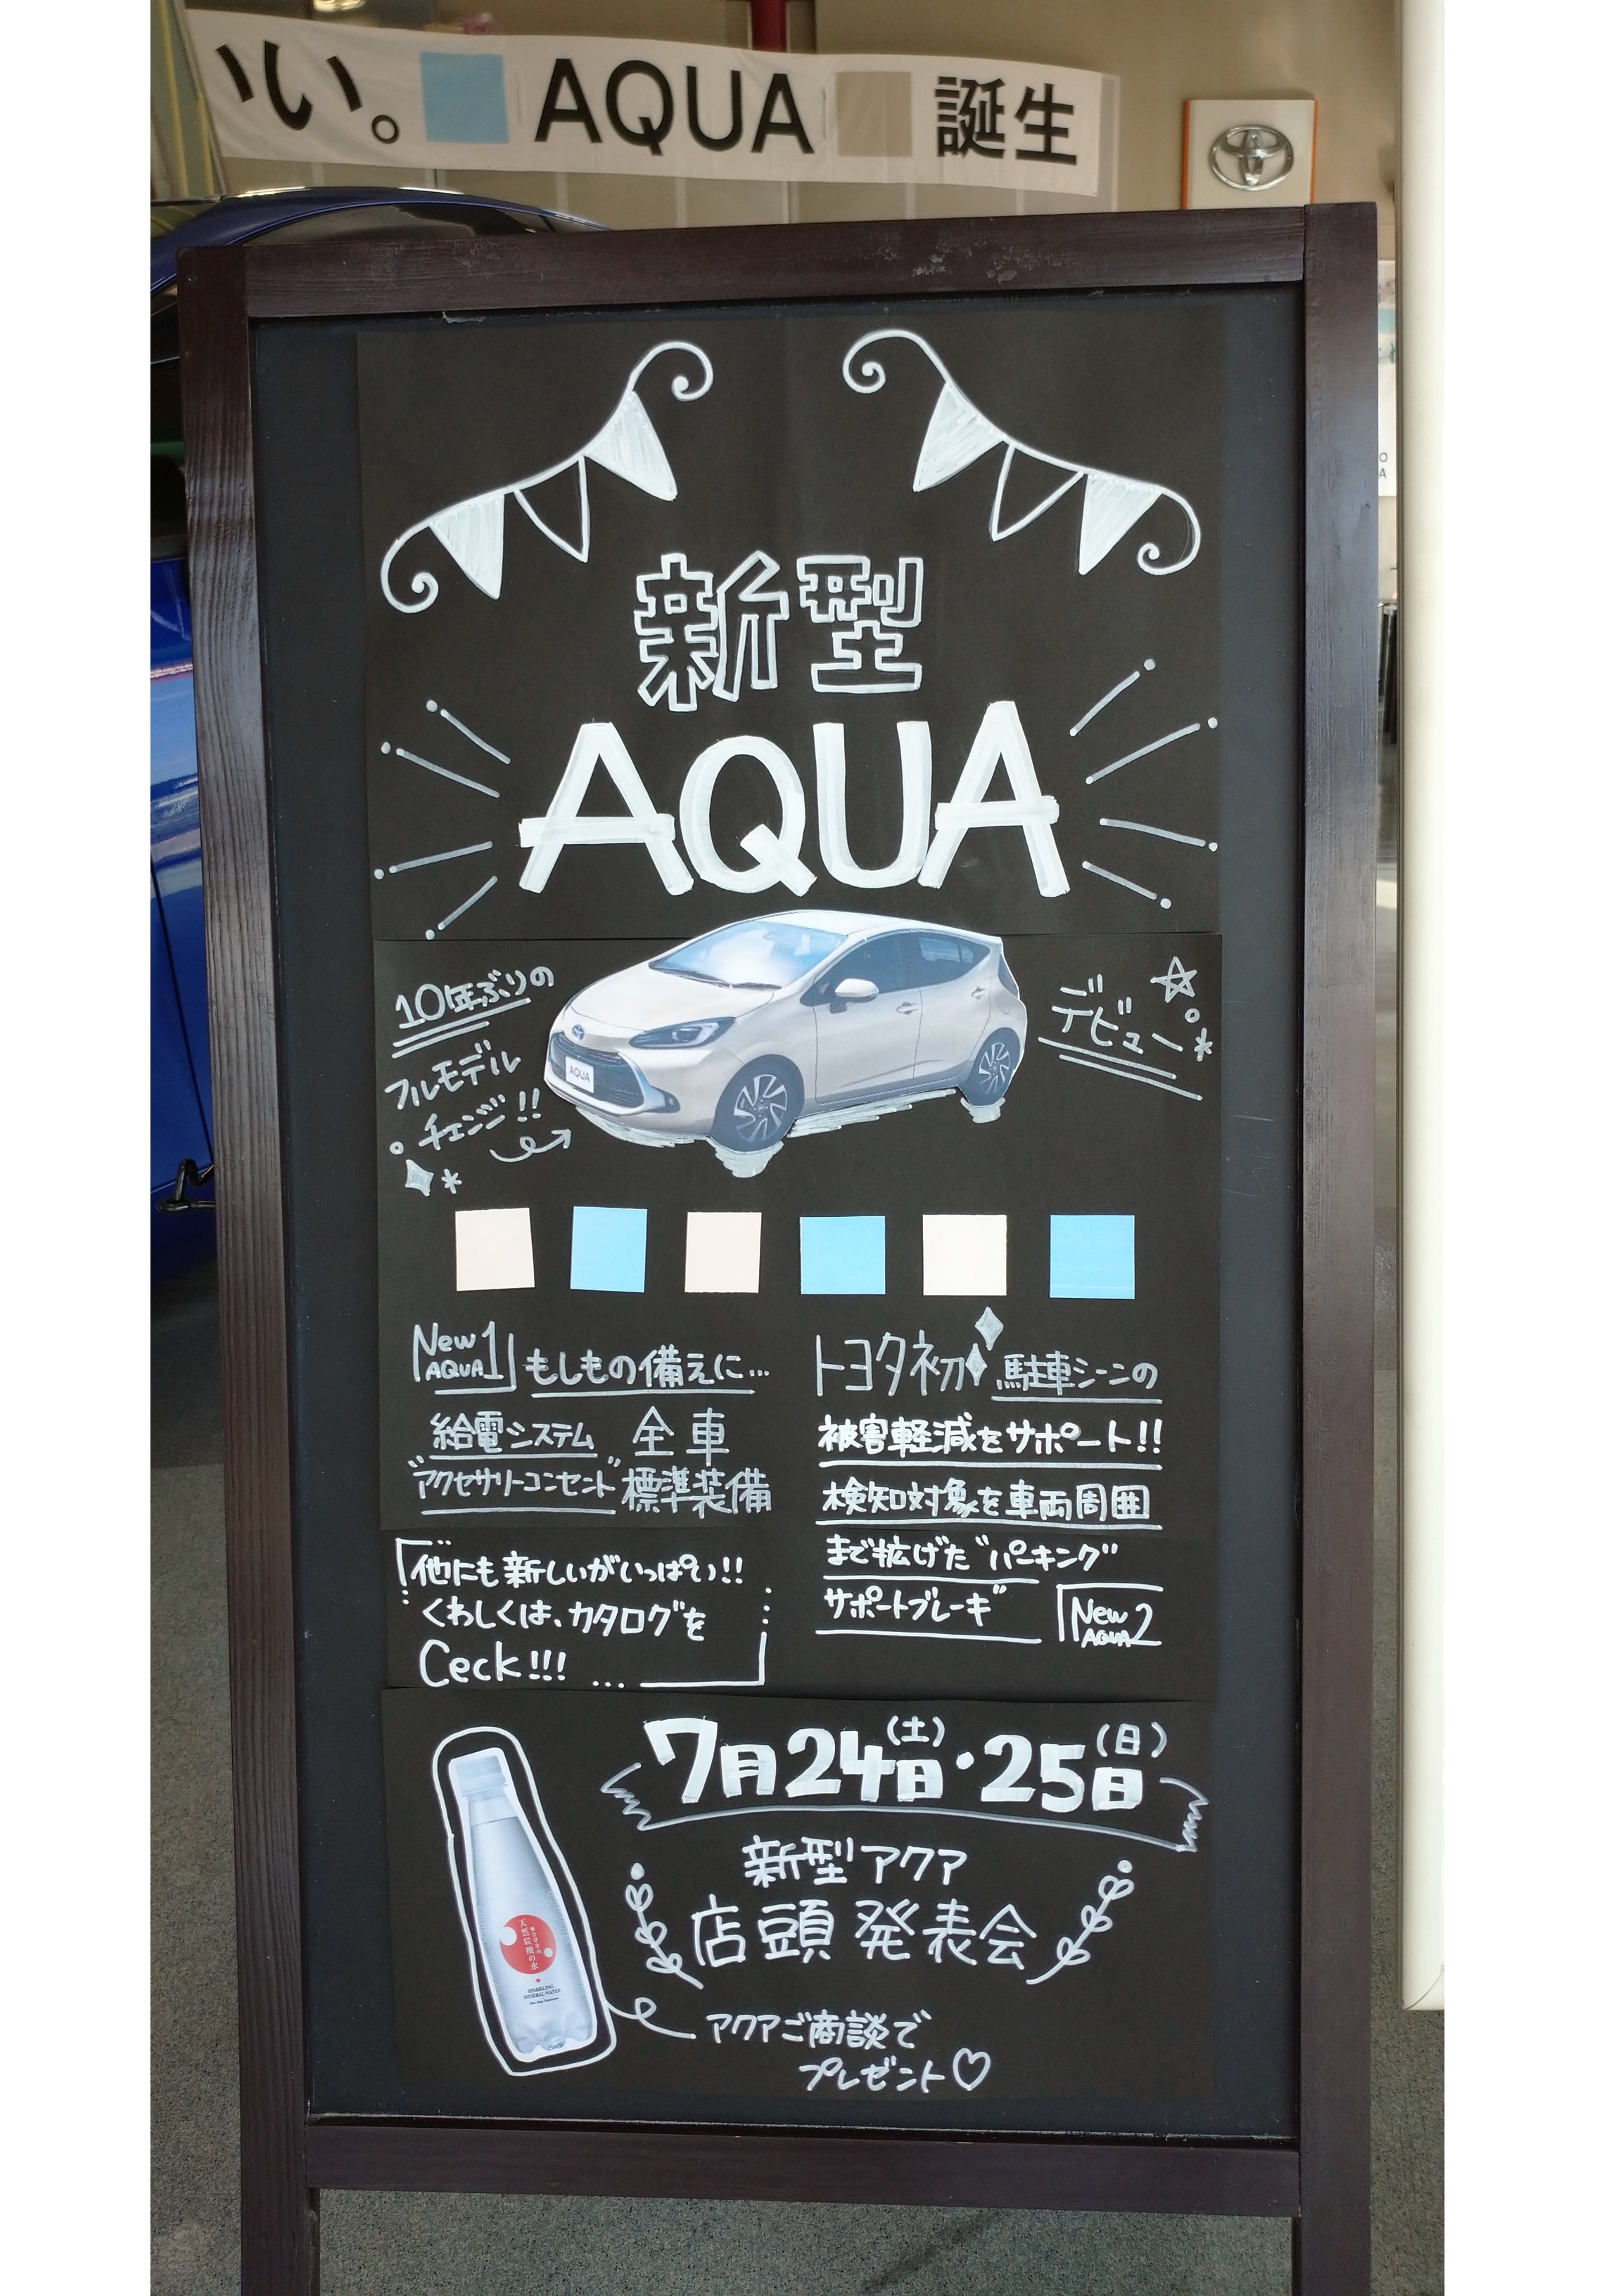 い。 AQUA 誕生
新型
AQUA
10年ぶりの
フルモデル
チェンジ!!
デビュー
AQUA
New
AQUA1
もしもの備えに…
給電システム
"アクセサリーコンセント"
全車
標準装備
他にも新しいがいっぱい!!
くわしくは、カタログを
Ceck!!!
トヨタ初 駐車シーンの
被害軽減をサポート!!
検知対象を車両周囲
まで拡げた"パーキング
サポートブレーキ"
New
AQUA2
7月24日(土)・25日(日)
新型アクア
店頭発表会
天然炭酸の水
SPARKLING
MINERAL WATER
アクアご商談で
プレゼント♡